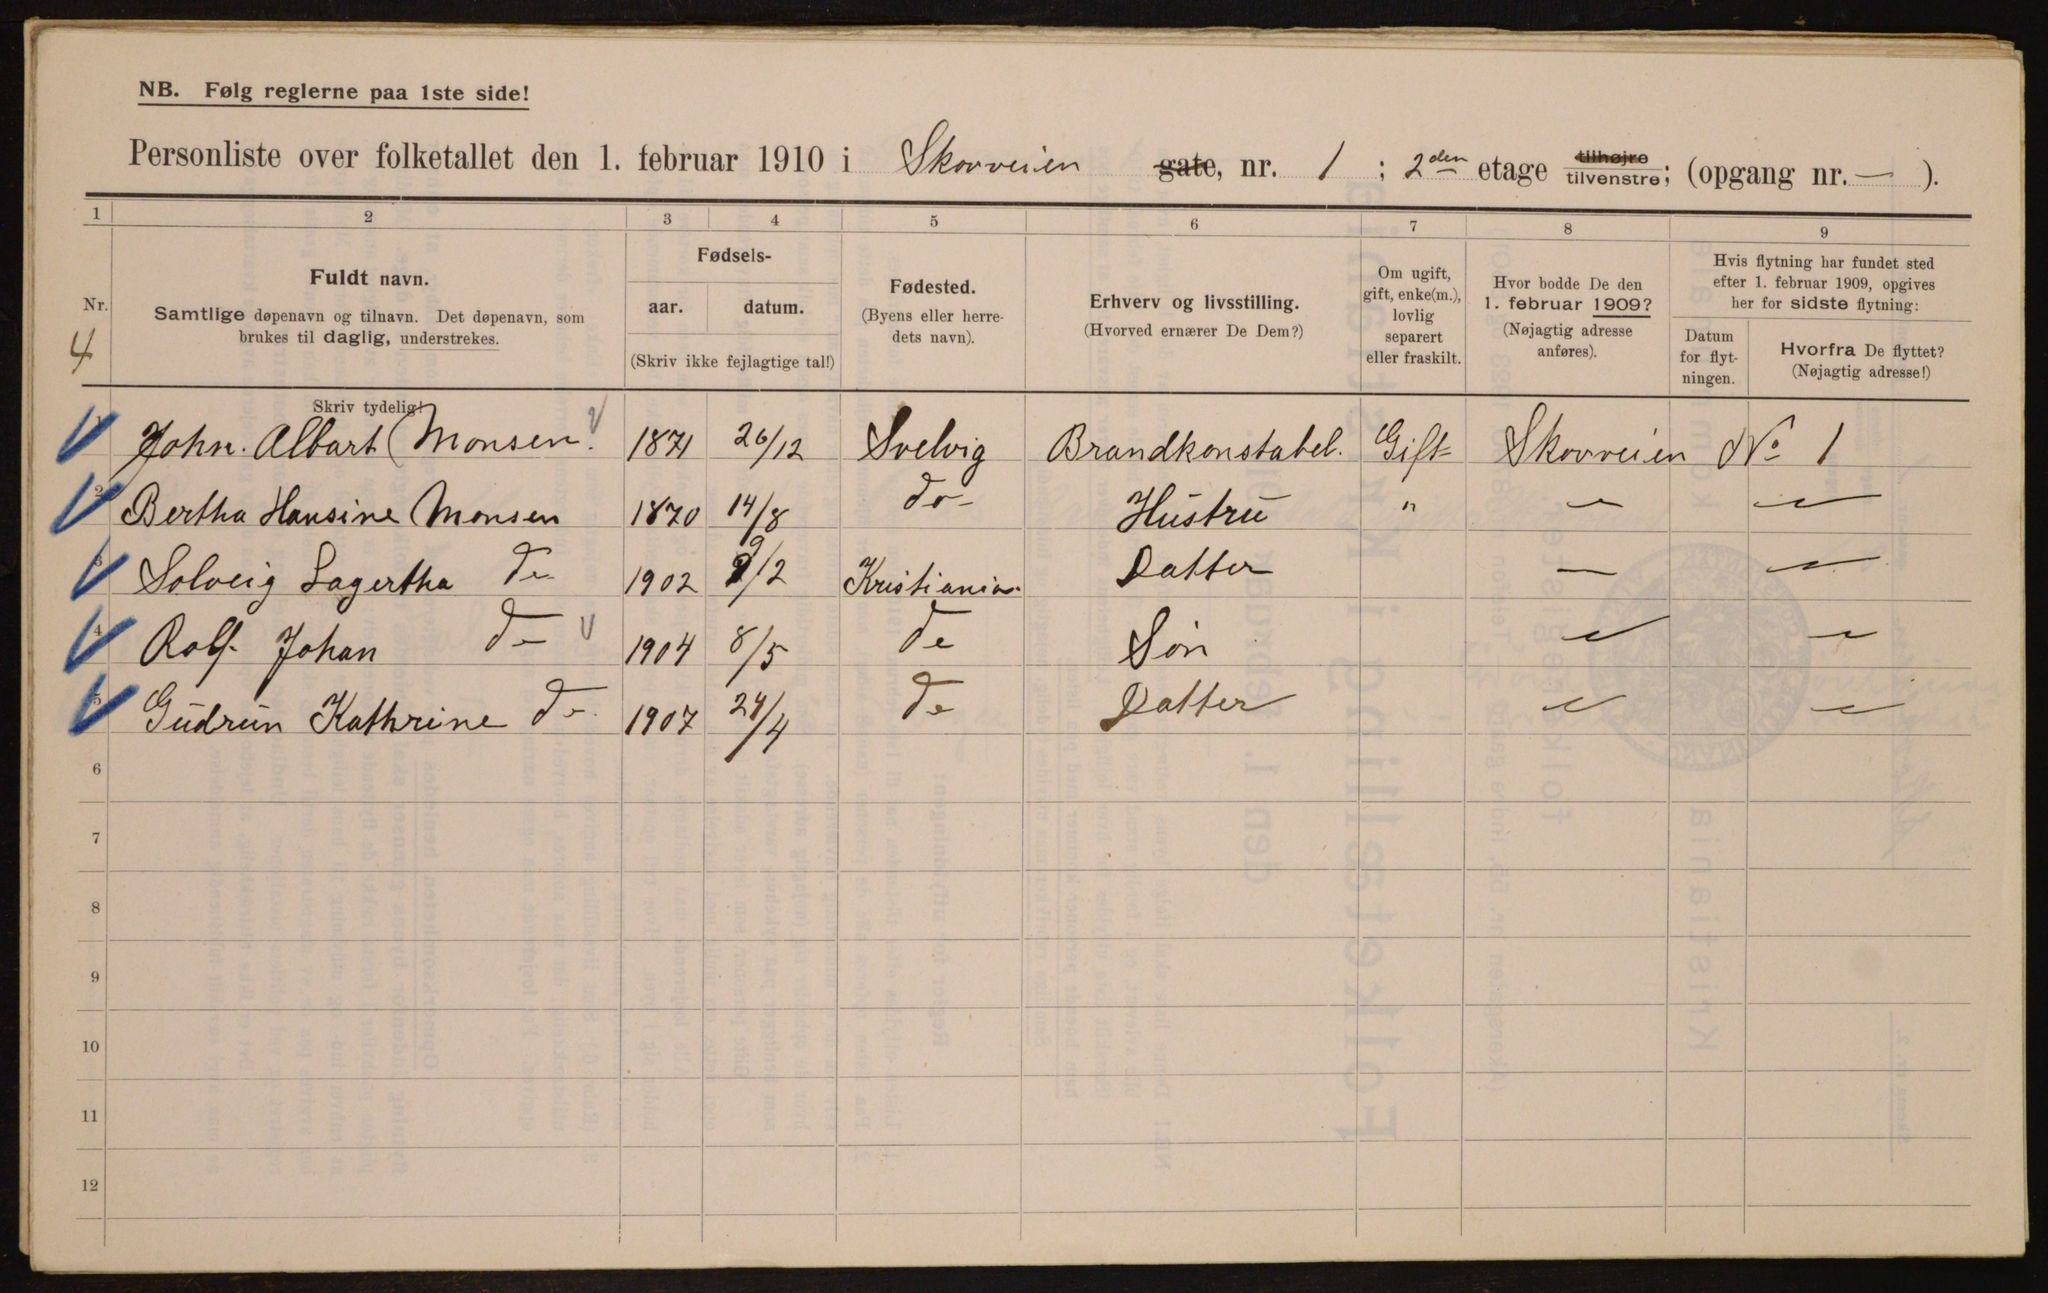 NB. Følg reglerne paa 1ste side!
Personliste over folketallet den 1. februar 1910 i Skovveien gate, nr. 1 ; 2den etage tilhøjre tilvenstre; (opgang nr. — ).
1 2 3 4 5 6 7 8 9
Nr. 4
Fuldt navn.
Samtlige døpenavn og tilnavn. Det døpenavn, som
brukes til daglig, understrekes.
Skriv tydelig!
Fødsels-
aar. datum.
(Skriv ikke fejlagtige tal!)
Fødested.
(Byens eller herre-
dets navn).
Erhverv og livsstilling.
(Hvorved ernærer De Dem?)
Om ugift,
gift, enke(m.),
lovlig
separert
eller fraskilt.
Hvor bodde De den
1. februar 1909?
(Nøjagtig adresse
anføres).
Hvis flytning har fundet sted
efter 1. februar 1909, opgives
her for sidste flytning:
Datum
for flyt-
ningen.
Hvorfra De flyttet?
(Nøjagtig adresse!)
1 John. Albart Monsen. 1871 26/12 Svelvig Brandkonstabel. Gift Skovveien No 1
2 Bertha Hansine Monsen 1870 14/8 do Hustru " — —
3 Solveig Lagertha do 1902 9/2 Kristiania. Datter — —
4 Rolf Johan do 1904 8/5 do Søn — —
5 Gudrun Kathrine do 1907 24/4 do Datter — —
6
7
8
9
10
11
12